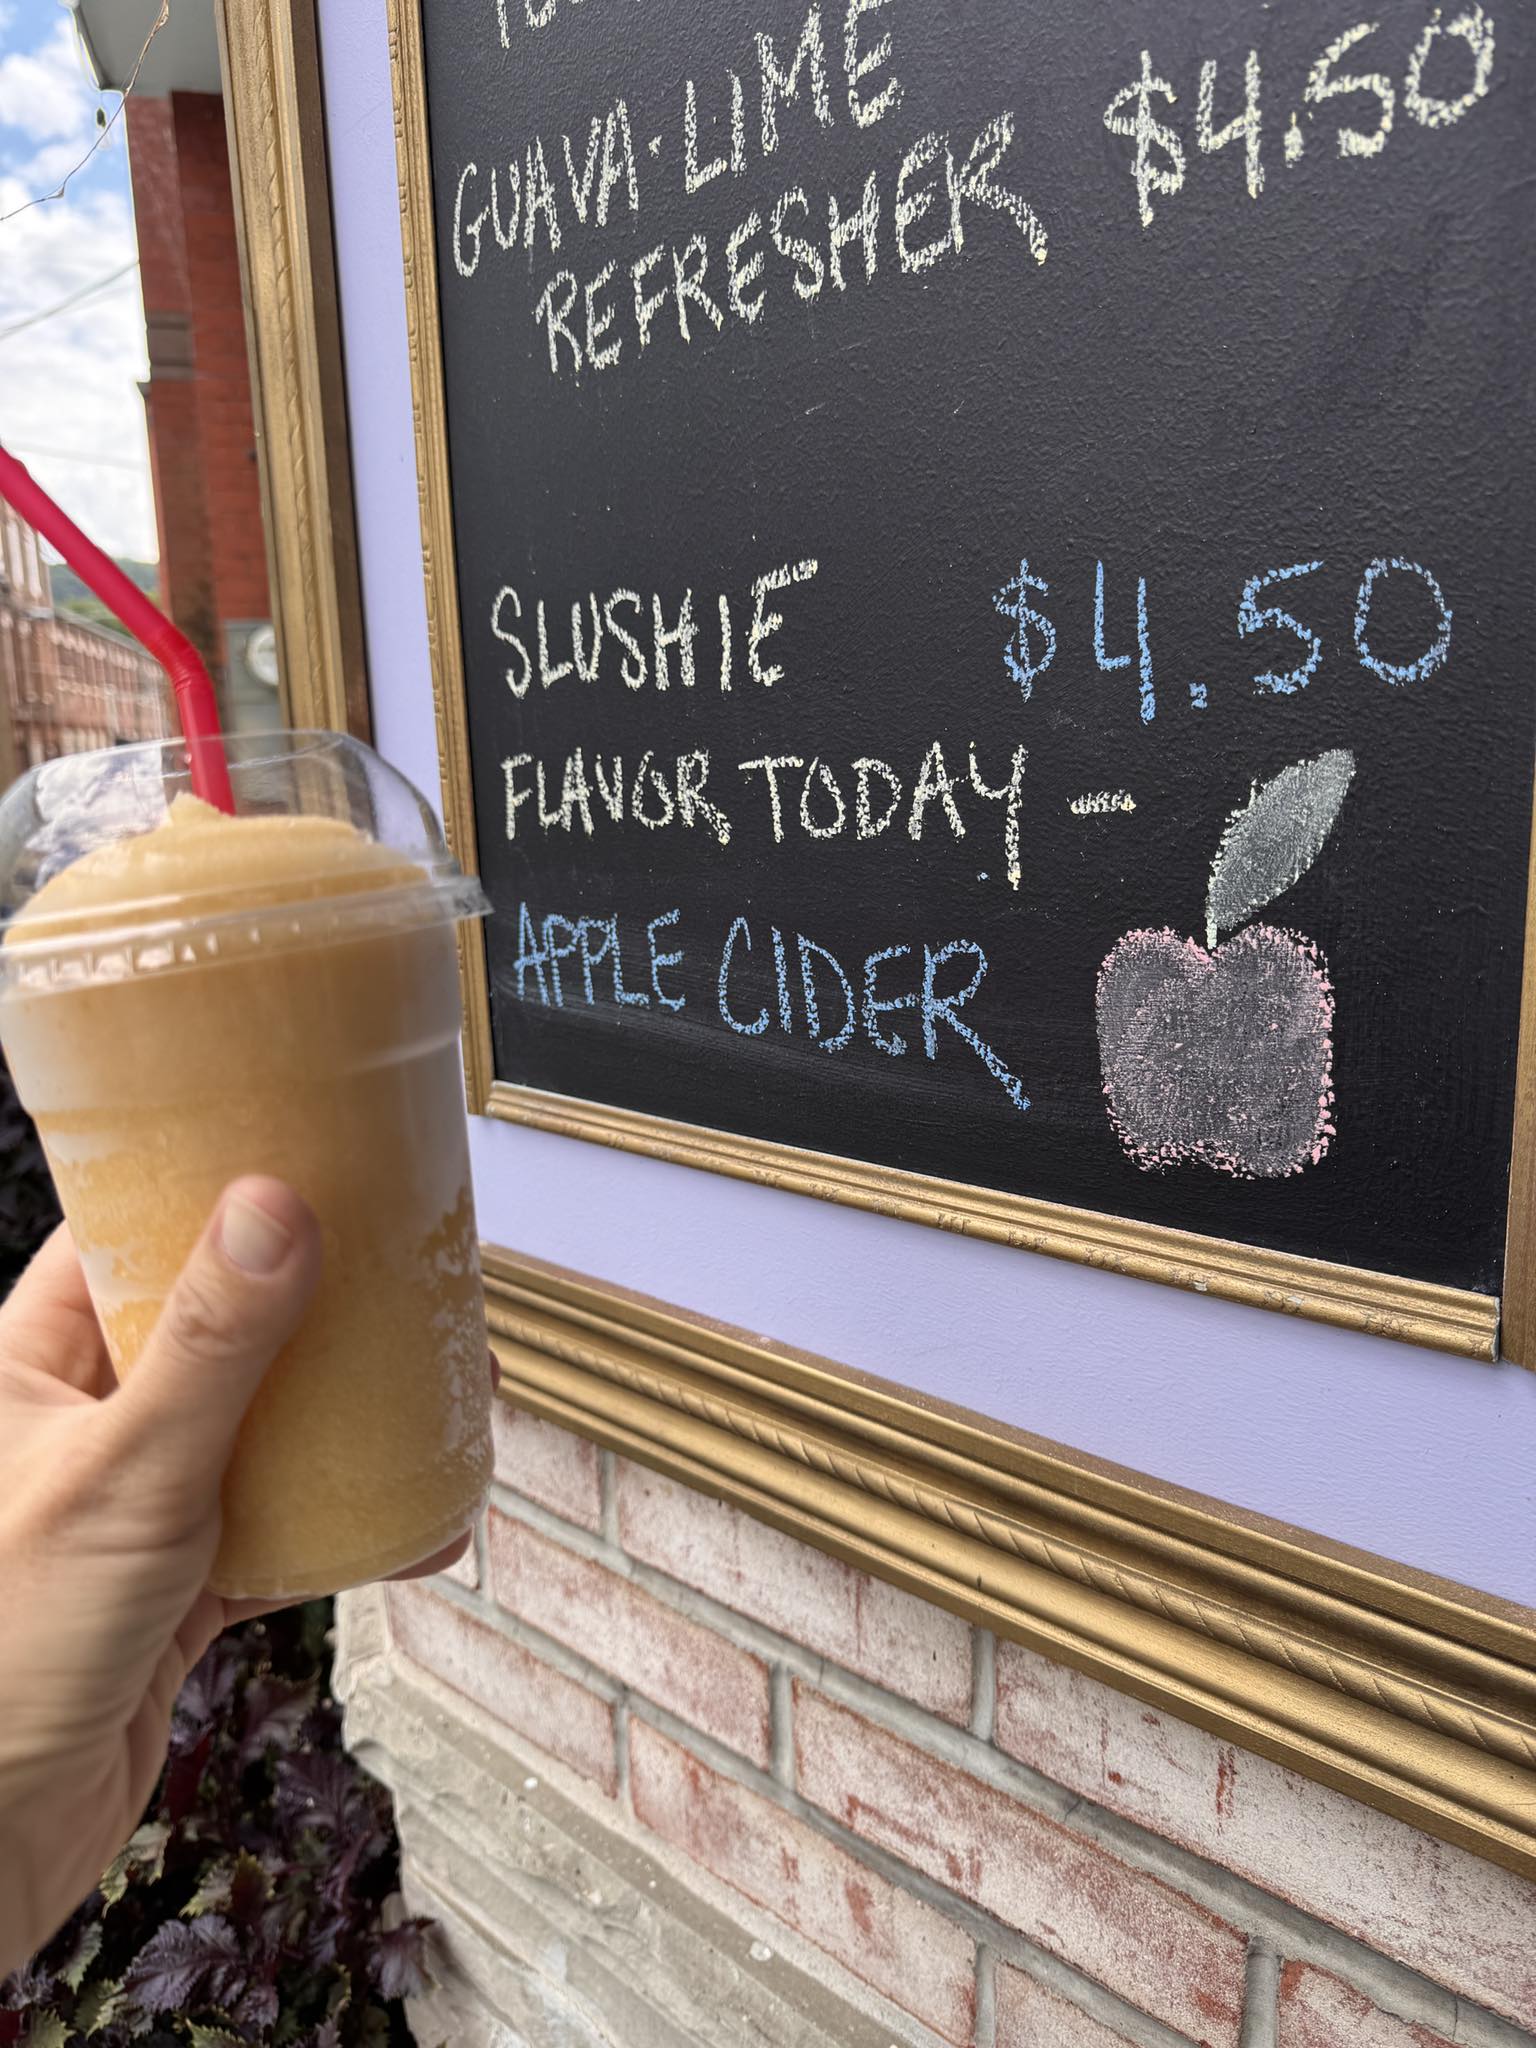 GUAVA·LIME $4.50
REFRESHER
SLUSHIE $4.50
FLAVOR TODAY -
APPLE CIDER